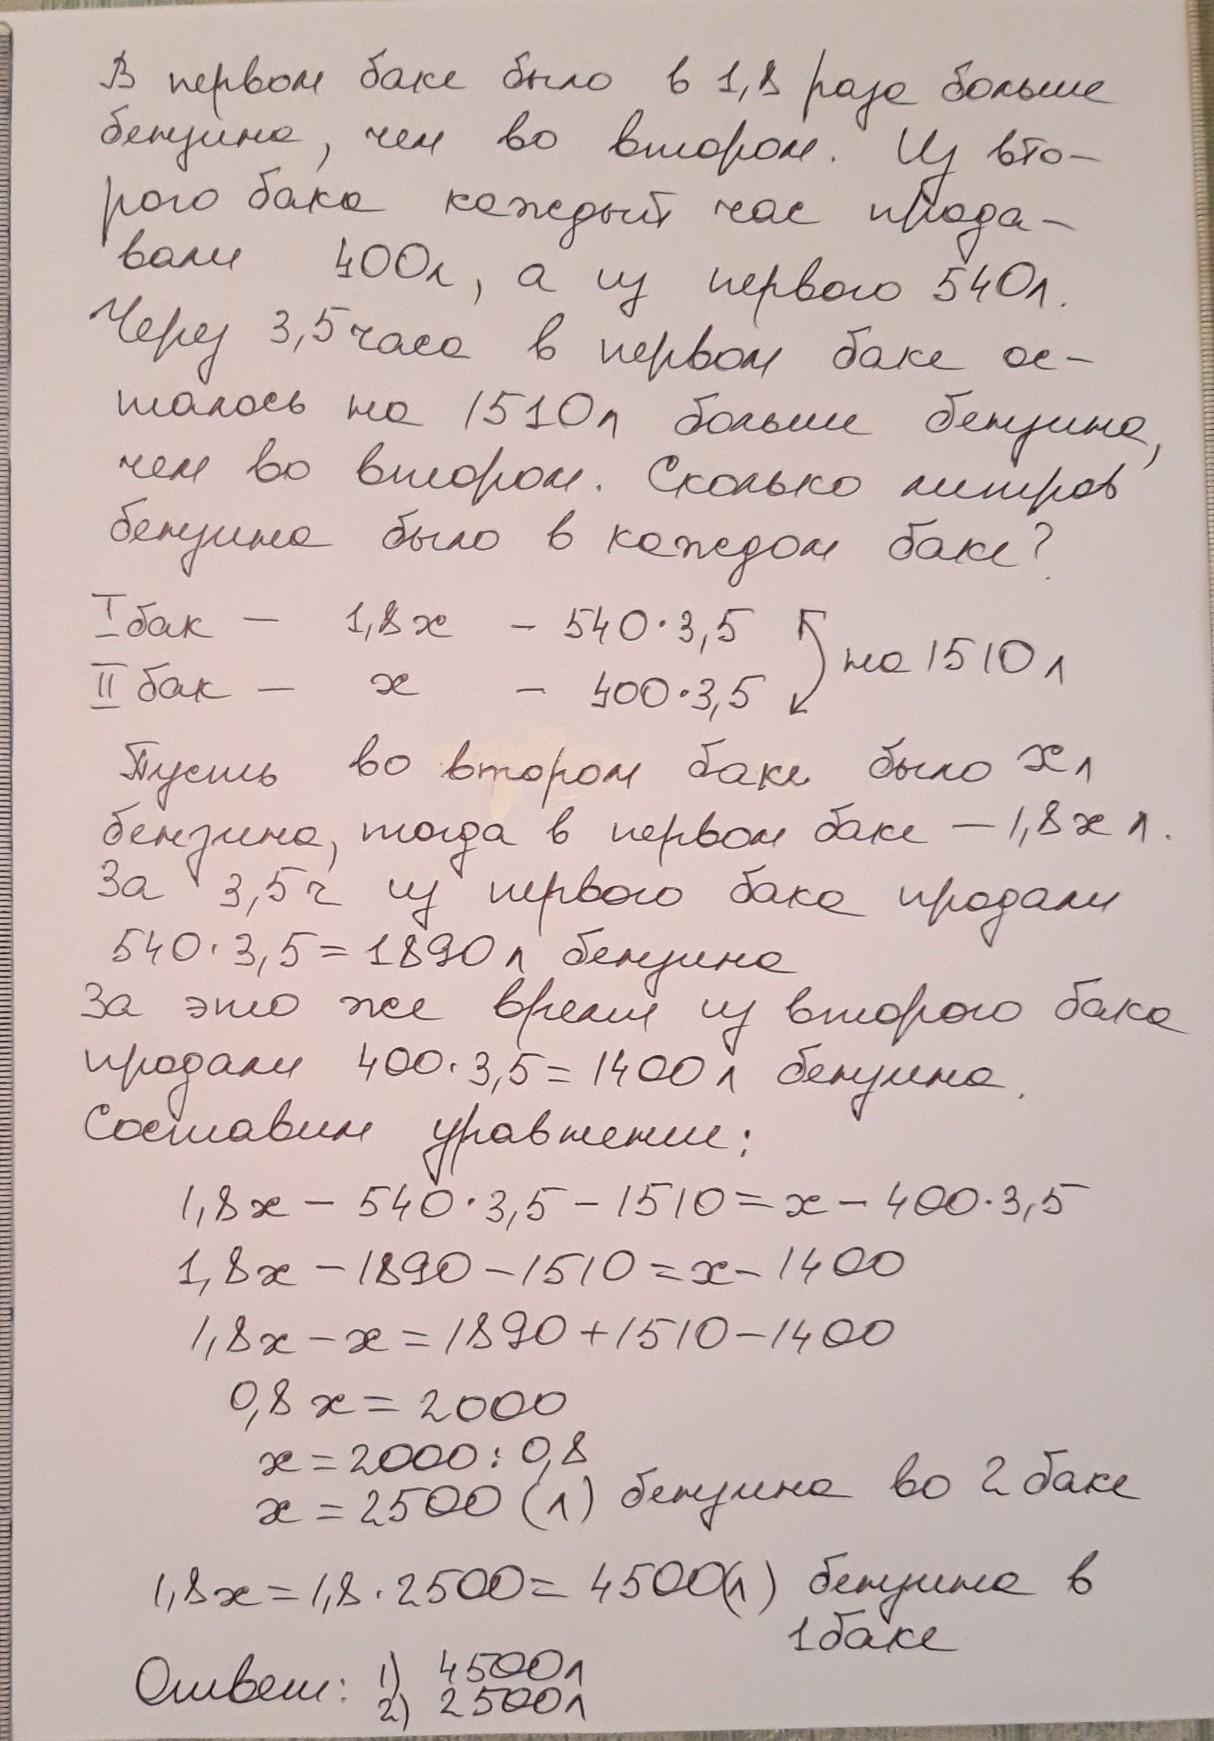 В первом баке было в 1,8 раза больше
бензина, чем во втором. Из вто-
рого бака каждый час прода-
вали 400л, а из первого 540л.
Через 3,5 часа в первом баке ос-
талось на 1510л больше бензина,
чем во втором. Сколько литров
бензина было в каждом баке?
I бак — 1,8x - 540·3,5
на 1510 л
II бак — x - 400·3,5
Пусть во втором баке было x л
бензина, тогда в первом баке — 1,8x л.
За 3,5ч из первого бака продали
540·3,5=1890 л бензина
За это же время из второго бака
продали 400·3,5=1400 л бензина.
Составим уравнение:
1,8x - 540·3,5 - 1510 = x - 400·3,5
1,8x - 1890 - 1510 = x - 1400
1,8x - x = 1890 + 1510 - 1400
0,8x = 2000
x = 2000 : 0,8
x = 2500 (л) бензина во 2 баке
1,8x = 1,8·2500 = 4500(л) бензина в
1 баке
Ответ: 1) 4500л
2) 2500л